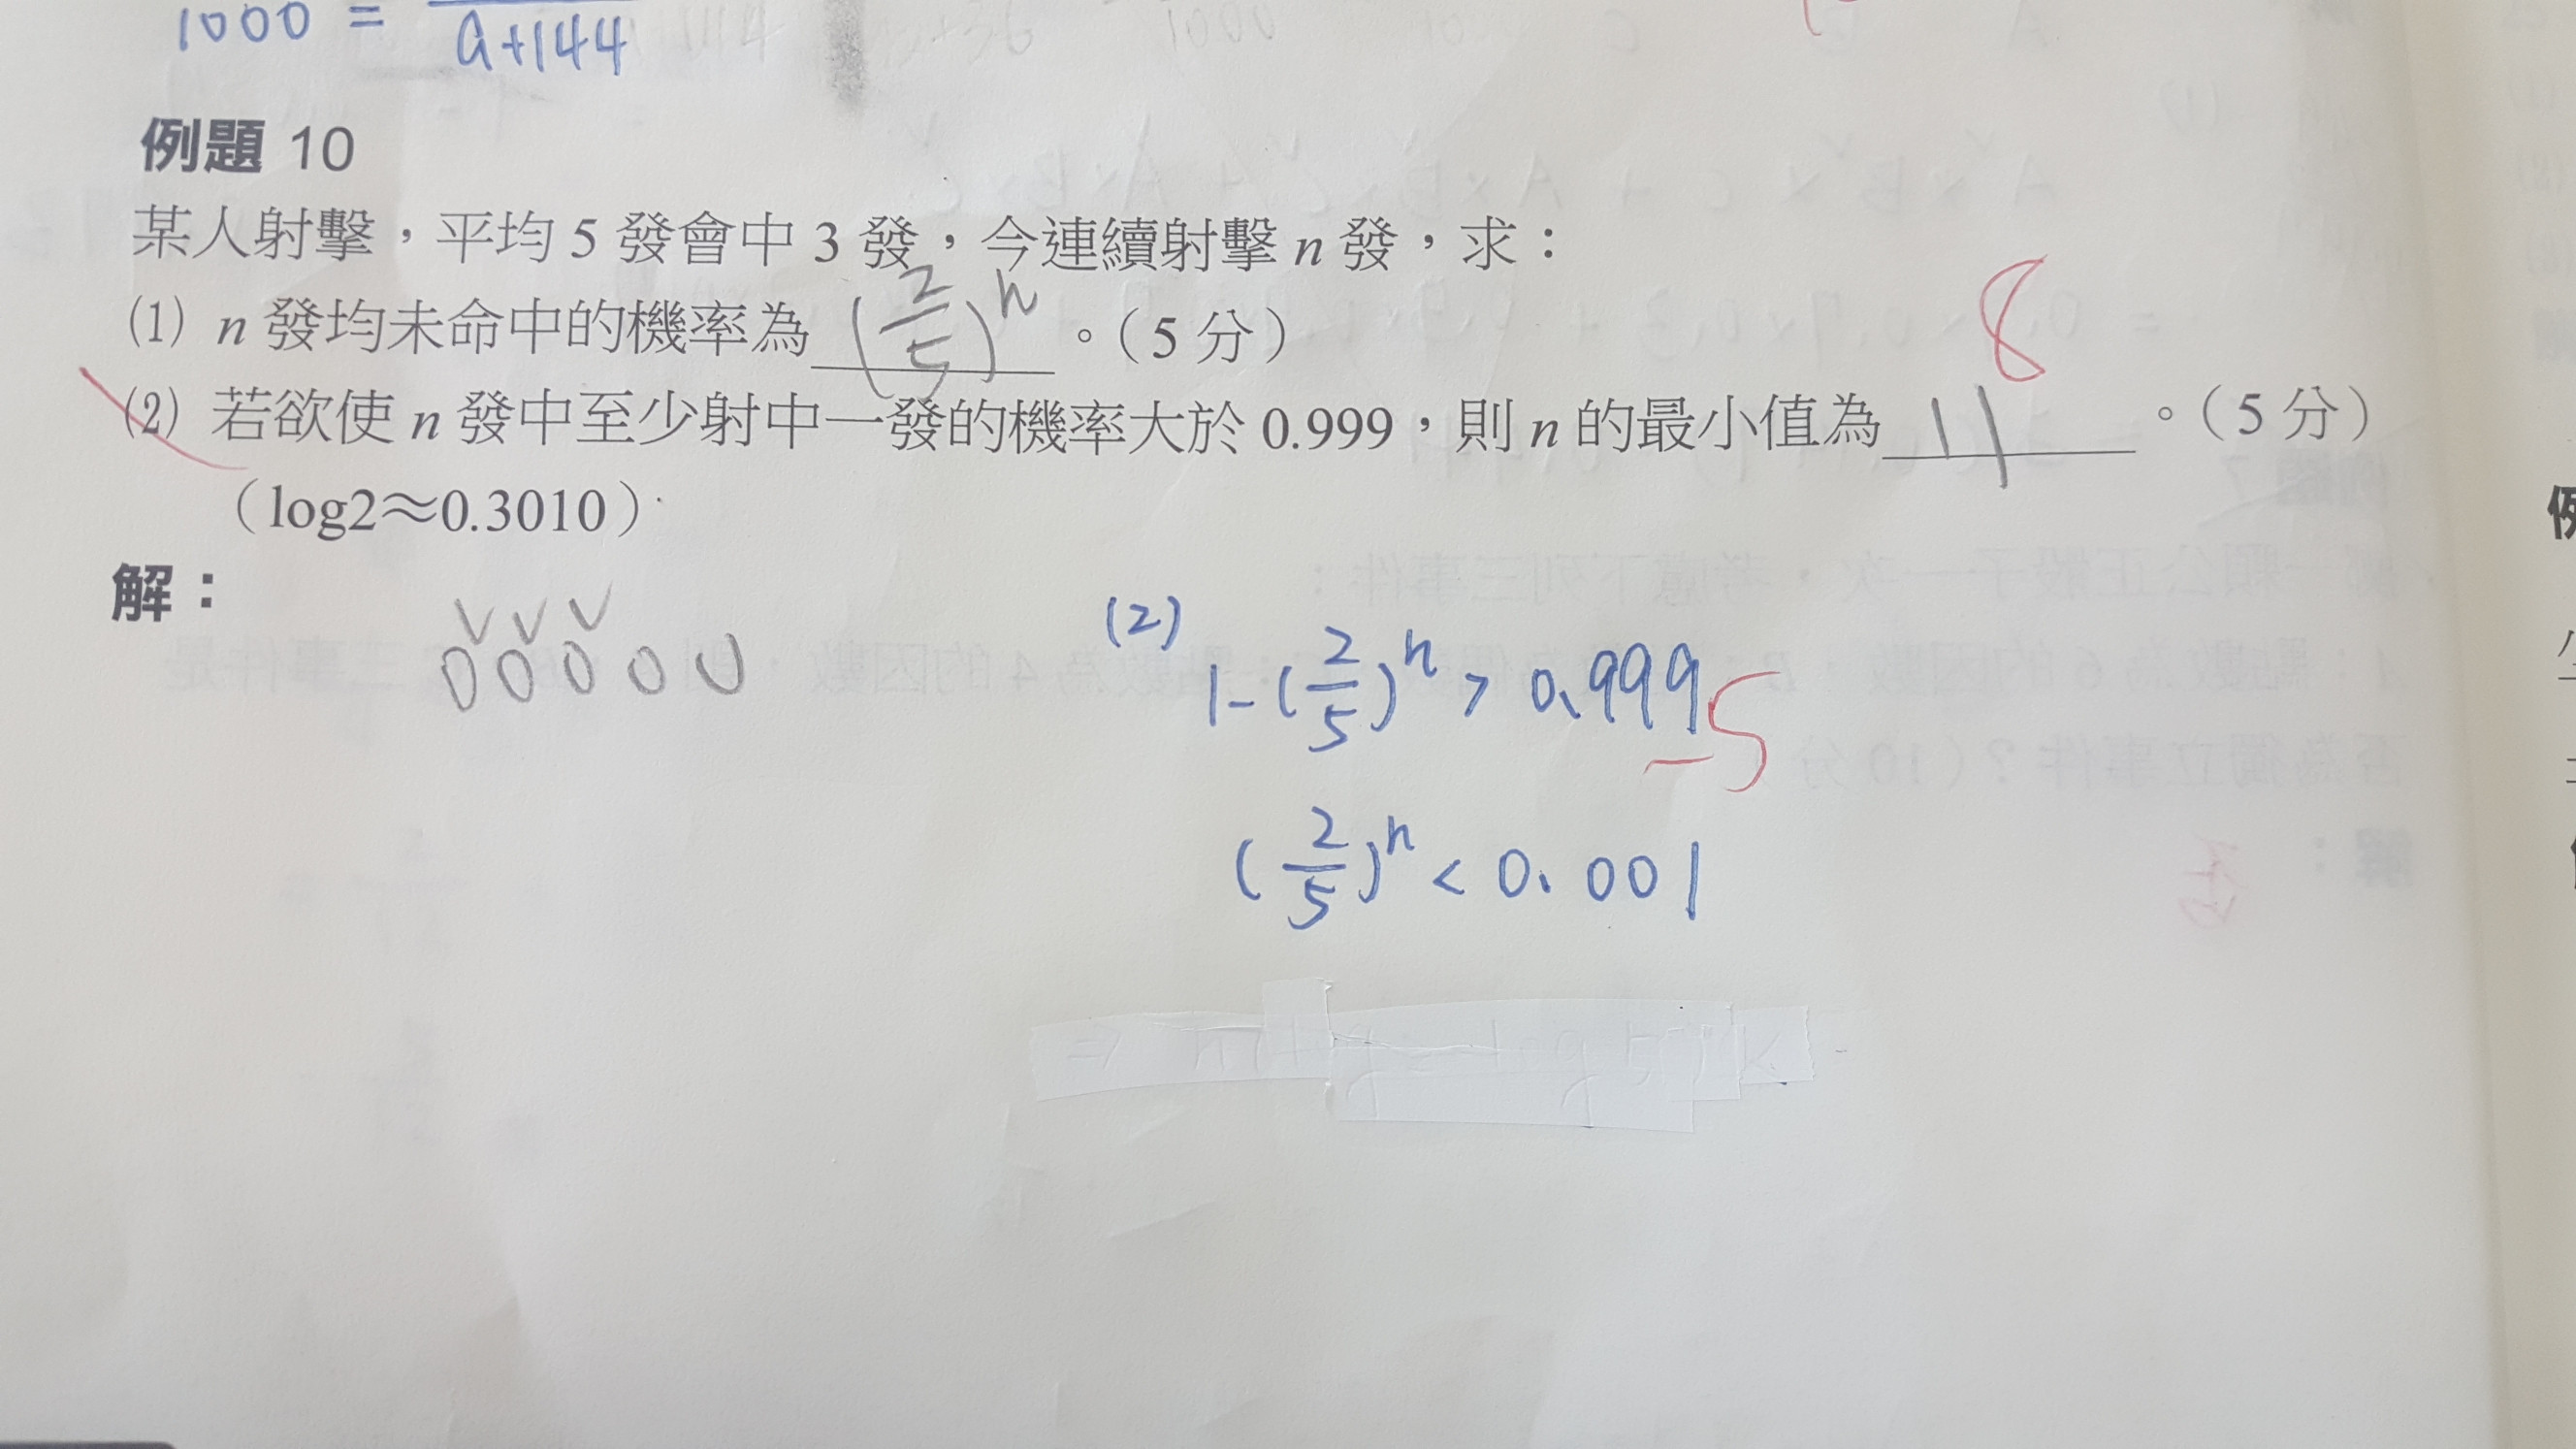 1000 = a+144
例題 10
某人射擊，平均 5 發會中 3 發，今連續射擊 n 發，求：
(1) n 發均未命中的機率為 (2/5)^n 。（5 分）
8
(2) 若欲使 n 發中至少射中一發的機率大於 0.999，則 n 的最小值為 11 。（5 分）
（log2≈0.3010）
解：
(2)
1-(2/5)^n > 0.999
-5
(2/5)^n < 0.001